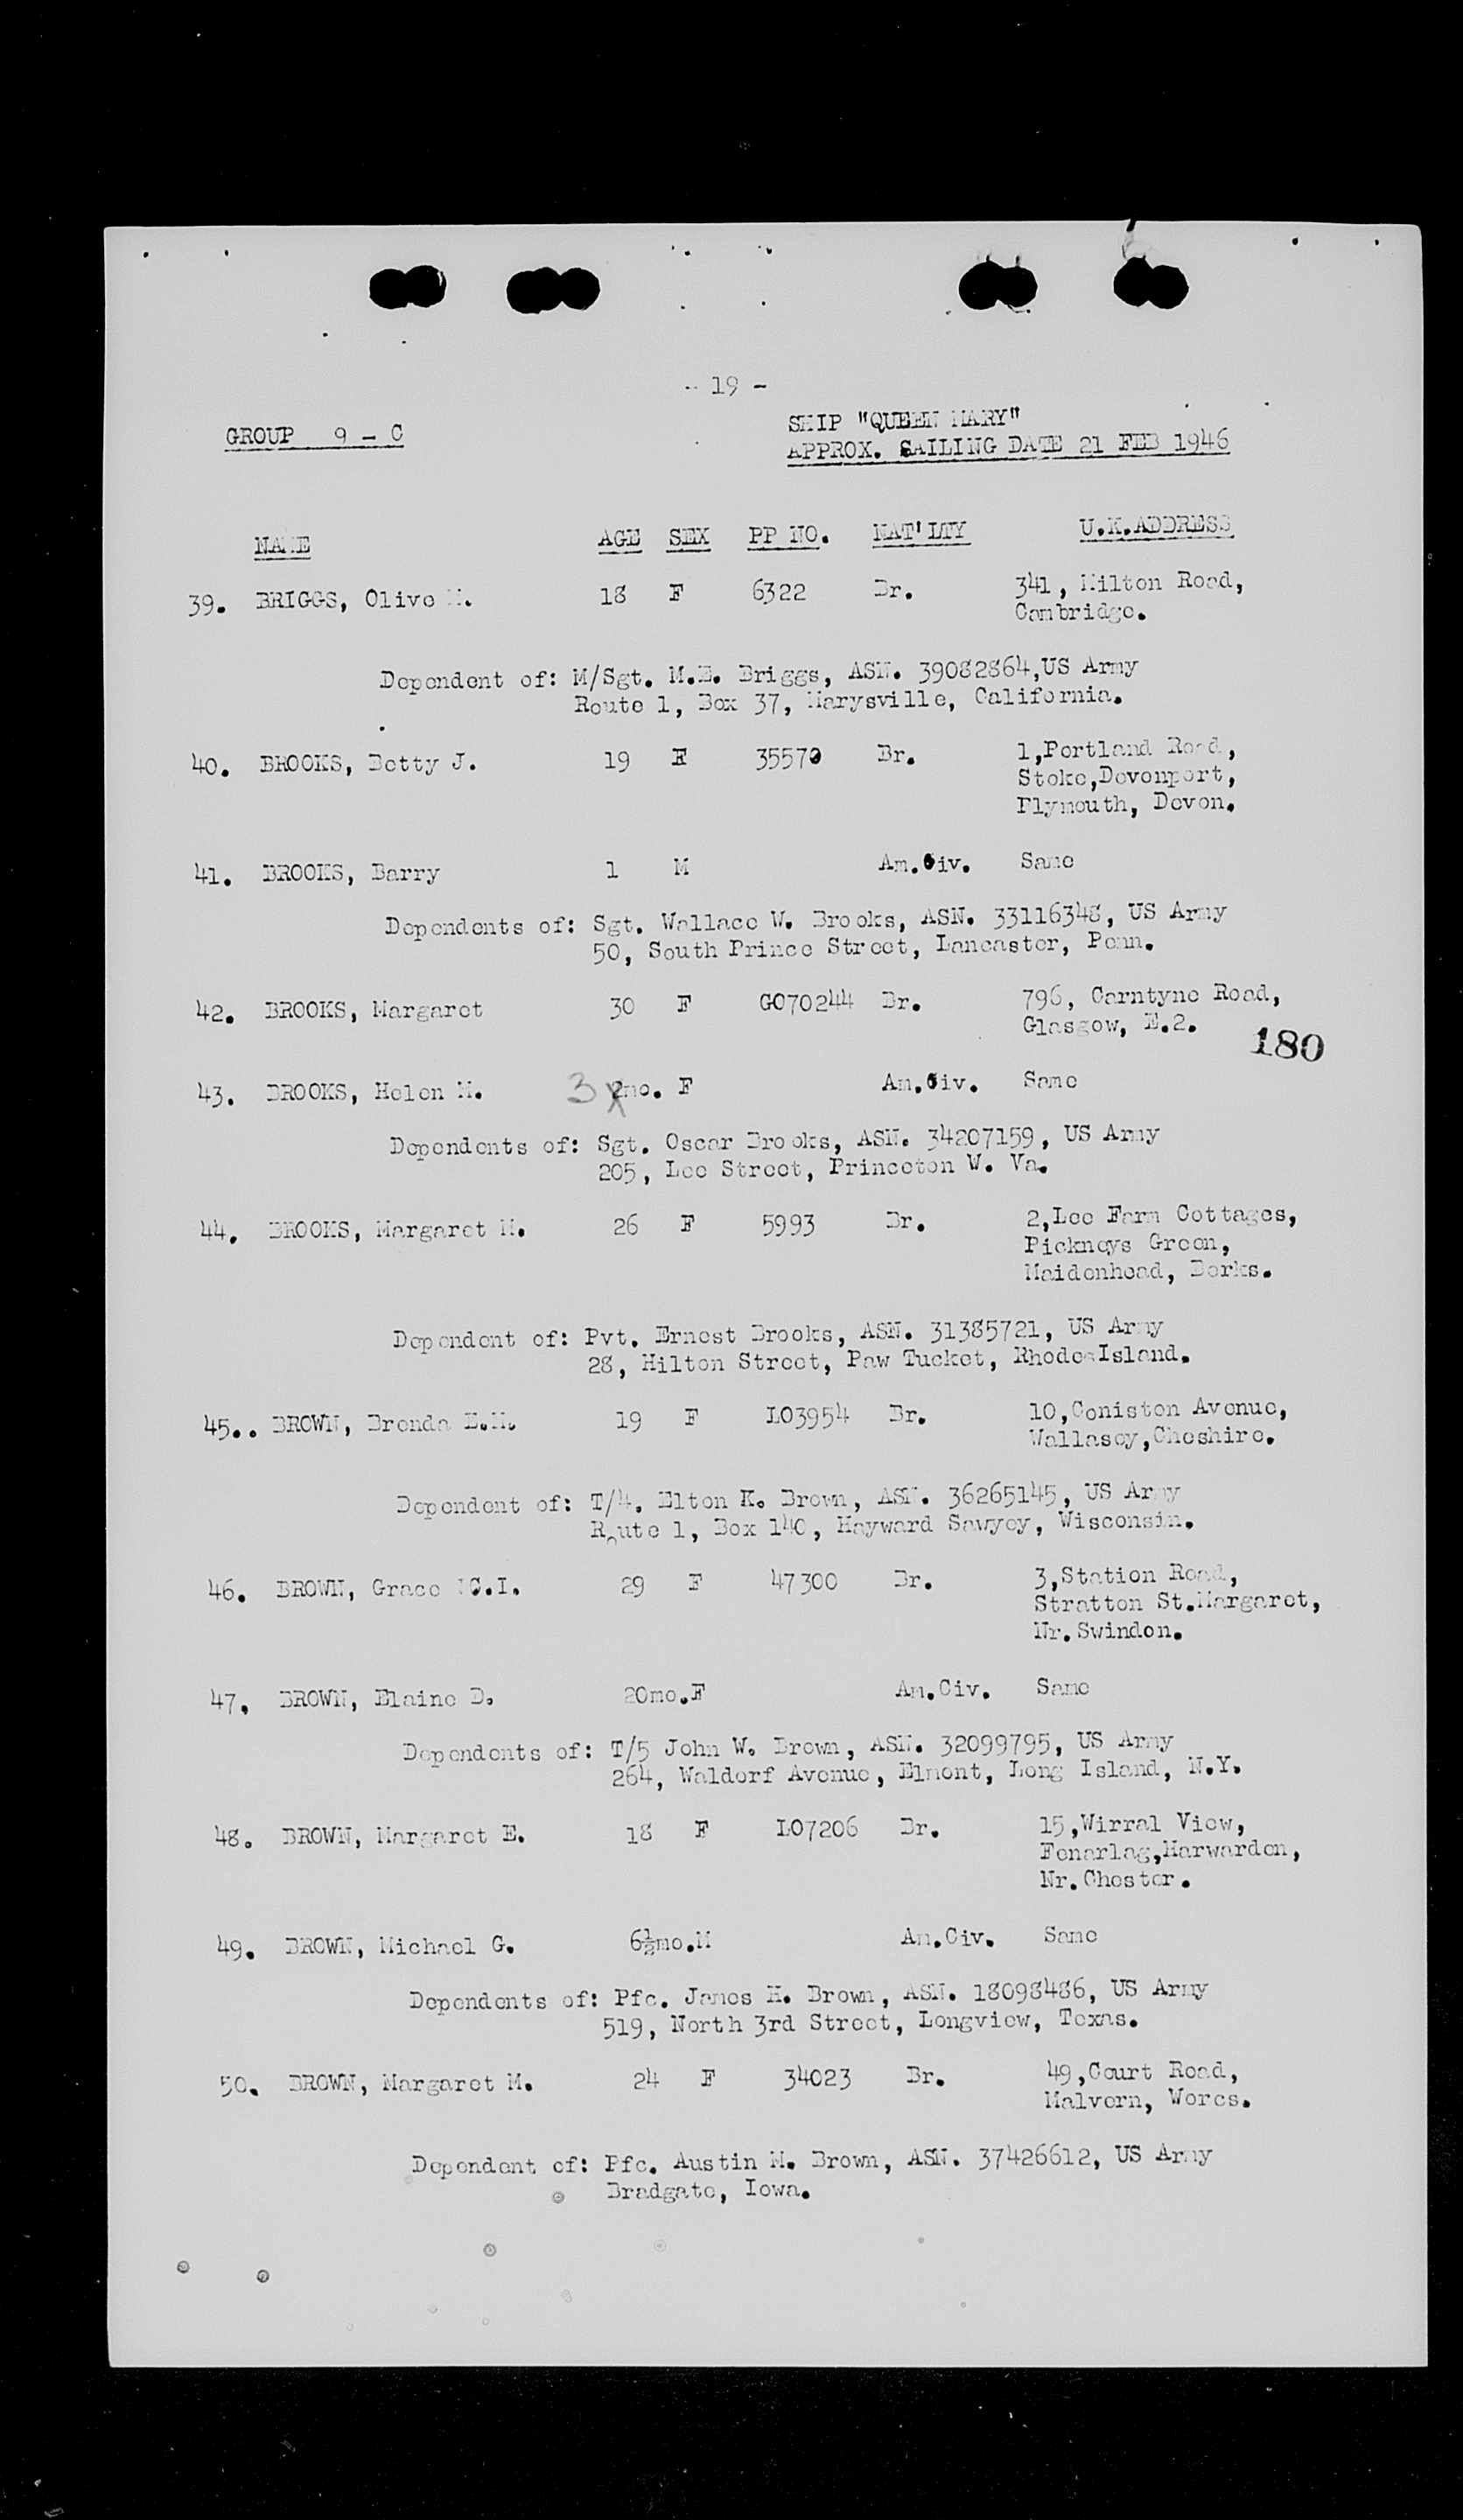 - 19 -
GROUP 9 - C
SHIP "QUEEN MARY"
APPROX. SAILING DATE 21 FEB 1946
NAME AGE SEX PP NO. NAT'LTY U.K.ADDRESS
39. BRIGGS, Olive M. 18 F 6322 Br. 341, Milton Road,
Cambridge.
Dependent of: M/Sgt. M.E. Briggs, ASN. 39082864,US Army
Route 1, Box 37, Marysville, California.
40. BROOKS, Betty J. 19 F 35570 Br. 1,Portland Road,
Stoke,Devonport,
Plymouth, Devon.
41. BROOKS, Barry 1 M Am.Civ. Same
Dependents of: Sgt. Wallace W. Brooks, ASN. 33116348, US Army
50, South Prince Street, Lancaster, Penn.
42. BROOKS, Margaret 30 F GO70244 Br. 796, Carntyne Road,
Glasgow, E.2.
180
43. BROOKS, Helen M. 3 2mo. F Am.Civ. Same
Dependents of: Sgt. Oscar Brooks, ASN. 34207159, US Army
205, Lee Street, Princeton W. Va.
44. BROOKS, Margaret M. 26 F 5993 Br. 2,Lee Farm Cottages,
Pickneys Green,
Maidenhead, Berks.
Dependent of: Pvt. Ernest Brooks, ASN. 31385721, US Army
28, Hilton Street, Paw Tucket, Rhodes Island.
45.. BROWN, Brenda E.M. 19 F LO3954 Br. 10,Coniston Avenue,
Wallasey,Cheshire.
Dependent of: T/4. Elton K. Brown, ASN. 36265145, US Army
Route 1, Box 140, Hayward Sawyey, Wisconsin.
46. BROWN, Grace C.I. 29 F 47300 Br. 3,Station Road,
Stratton St.Margaret,
Nr.Swindon.
47. BROWN, Elaine D. 20mo.F Am.Civ. Same
Dependents of: T/5 John W. Brown, ASN. 32099795, US Army
264, Waldorf Avenue, Elmont, Long Island, N.Y.
48. BROWN, Margaret E. 18 F LO7206 Br. 15,Wirral View,
Penarlag,Harwarden,
Nr.Chester.
49. BROWN, Michael G. 6½mo.M Am.Civ. Same
Dependents of: Pfc. James H. Brown, ASN. 18098486, US Army
519, North 3rd Street, Longview, Texas.
50. BROWN, Margaret M. 24 F 34023 Br. 49,Court Road,
Malvern, Worcs.
Dependent of: Pfc. Austin M. Brown, ASN. 37426612, US Army
Bradgate, Iowa.